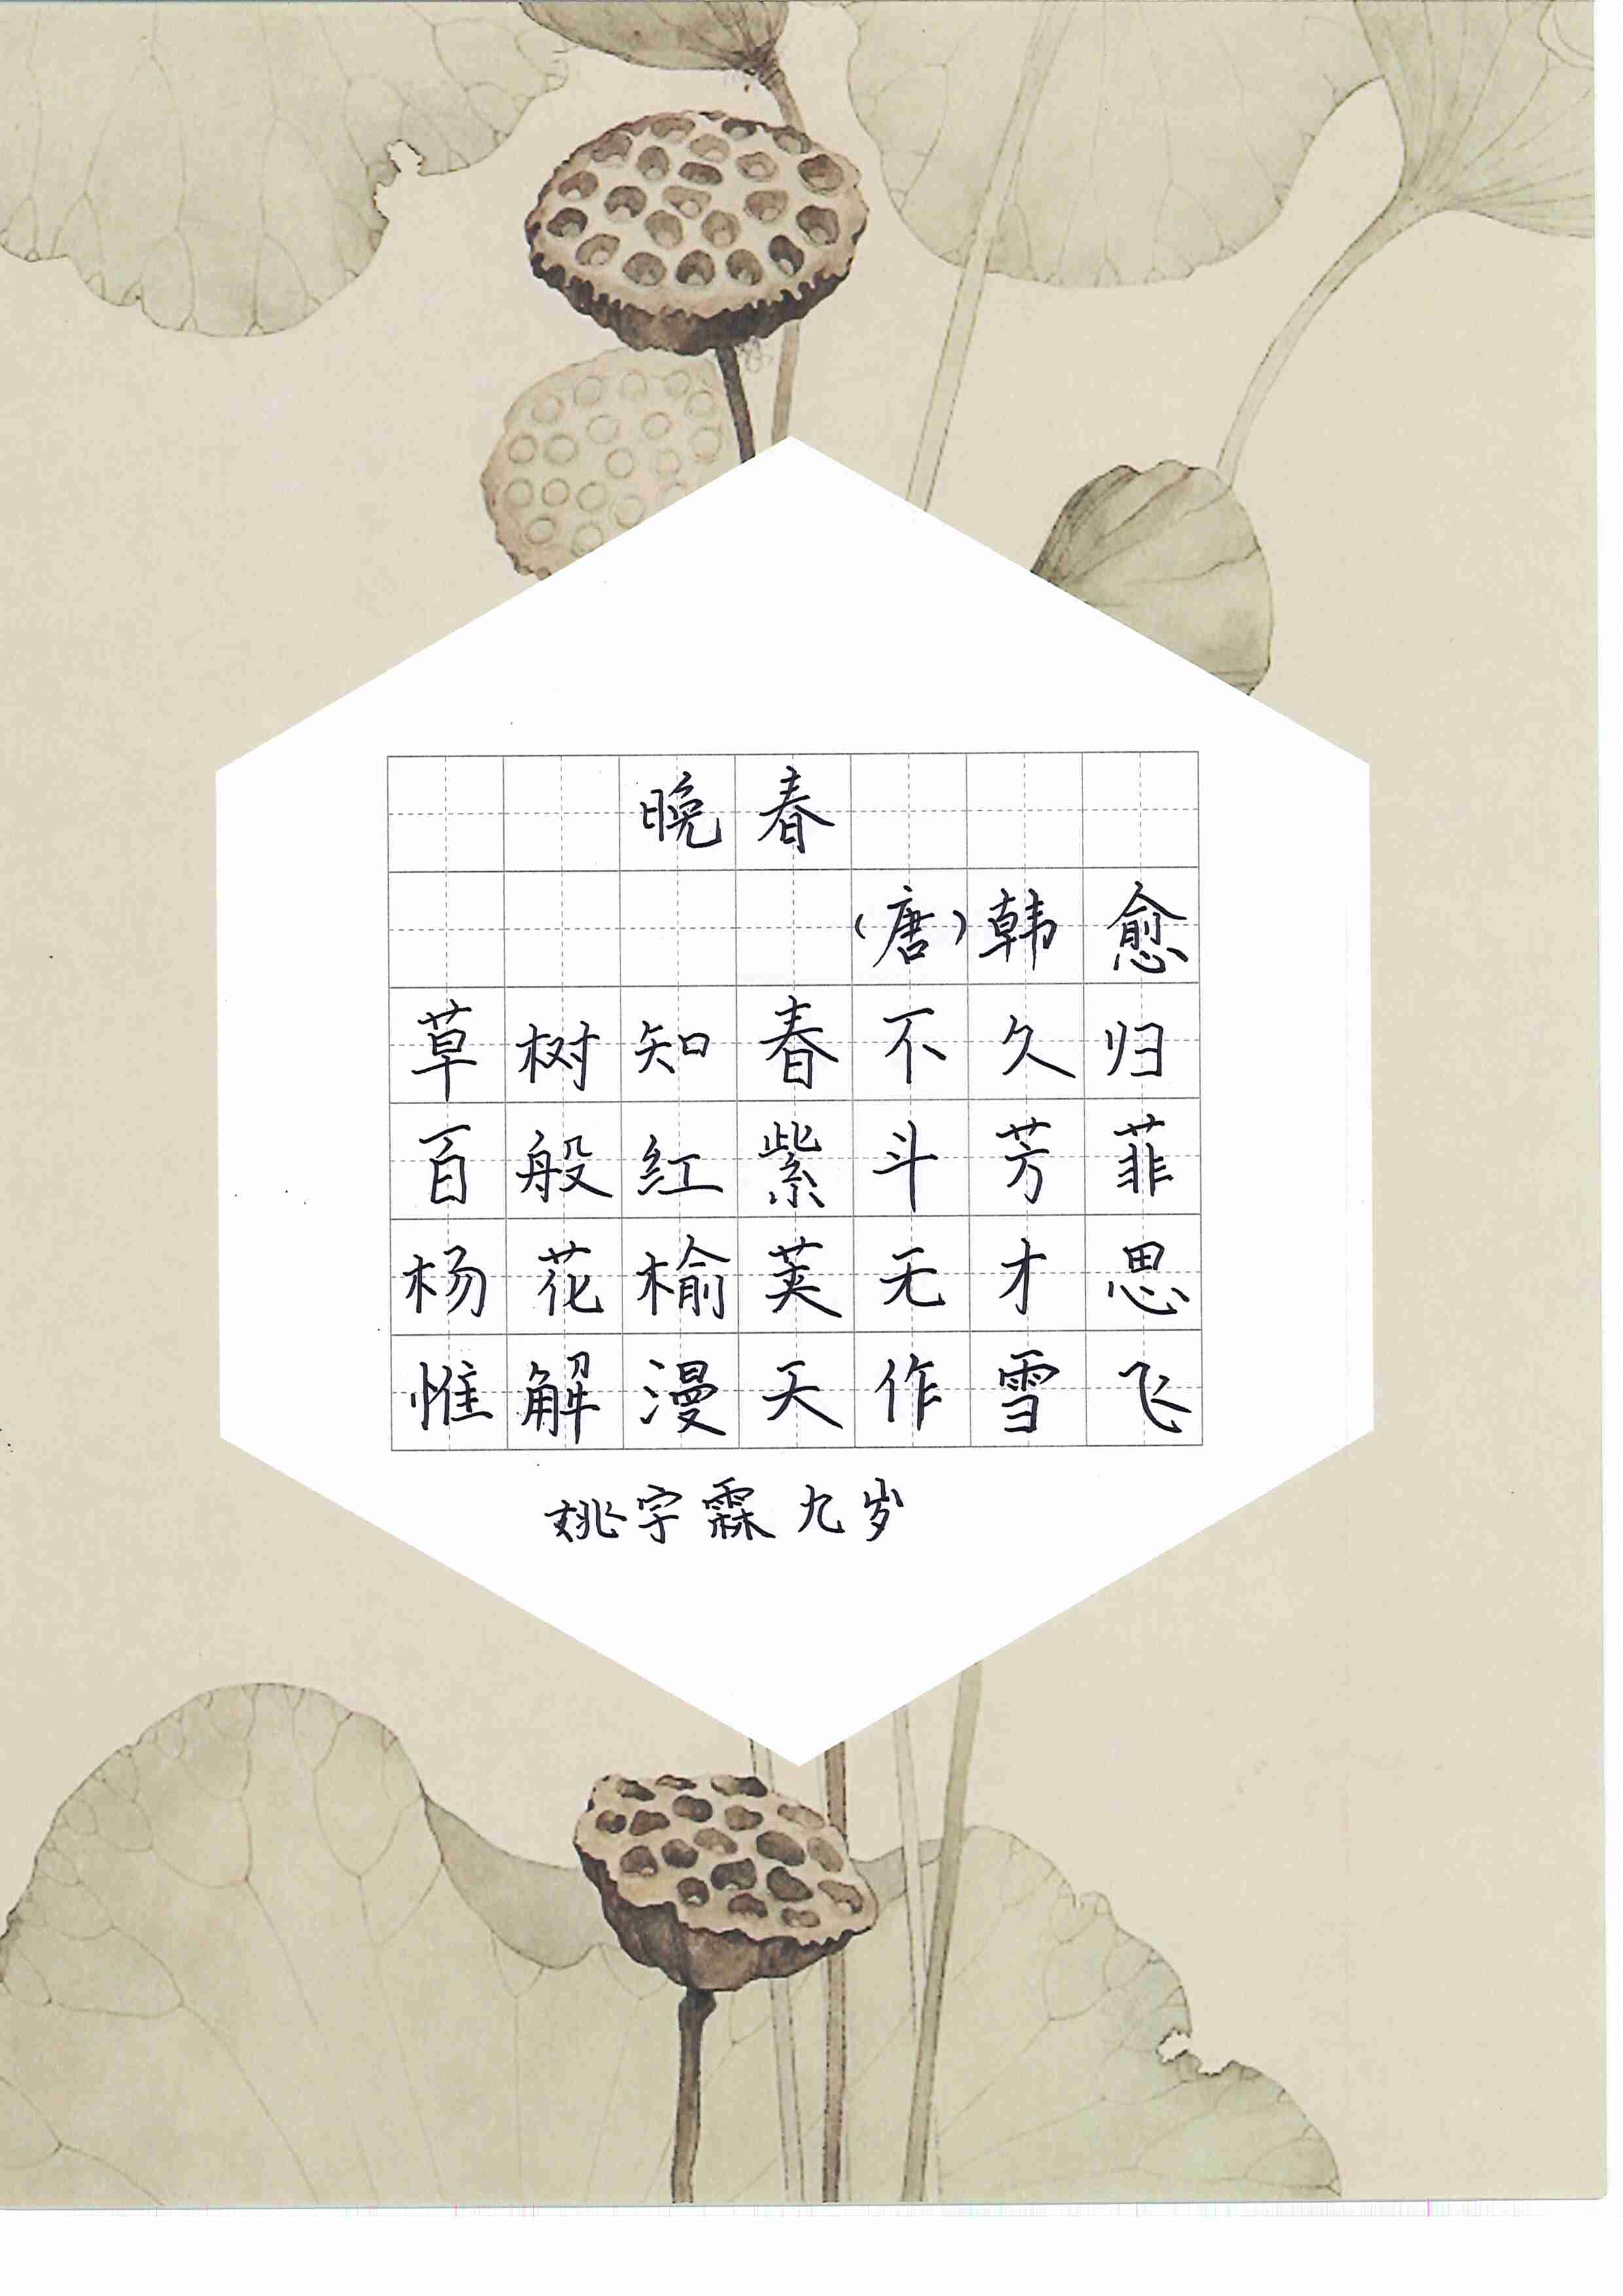 晚春
(唐)韩愈
草树知春不久归
百般红紫斗芳菲
杨花榆荚无才思
惟解漫天作雪飞
姚字霖九岁